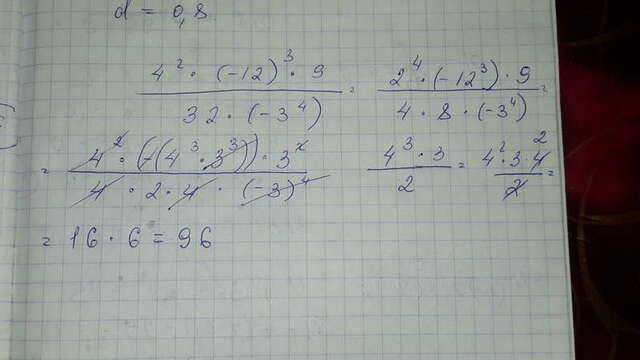 d = 0,8
4² · (-12)³ · 9 / 32 · (-3⁴) = 2⁴ · (-12³) · 9 / 4 · 8 · (-3⁴) =
= 4² · (-(4³ · 3³)) · 3² / 4 · 2 · 4 · (-3)⁴ 4³ · 3 / 2 = 4² · 3 · 4 2 / 2 =
= 16 · 6 = 96